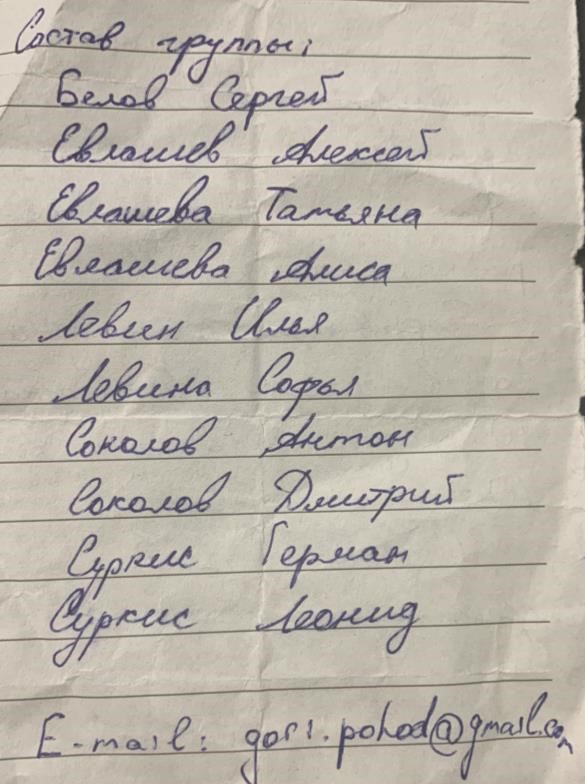 Состав группы:
Белов Сергей
Евлашев Алексей
Евлашева Татьяна
Евлашева Алиса
Левин Илья
Левина Софья
Соколов Антон
Соколов Дмитрий
Суркис Герман
Суркис Леонид
E-mail: gori.pohod@gmail.com